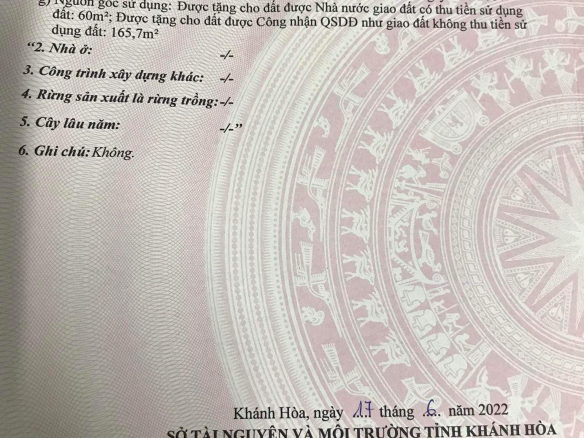 g) Nguồn gốc sử dụng: Được tặng cho đất được Nhà nước giao đất có thu tiền sử dụng
đất: 60m²; Được tặng cho đất được Công nhận QSDĐ như giao đất không thu tiền sử
dụng đất: 165,7m²
“2. Nhà ở: -/-
3. Công trình xây dựng khác: -/-
4. Rừng sản xuất là rừng trồng: -/-
5. Cây lâu năm: -/-”
6. Ghi chú: Không.
Khánh Hòa, ngày .17 tháng .6. năm 2022
SỞ TÀI NGUYÊN VÀ MÔI TRƯỜNG TỈNH KHÁNH HÒA